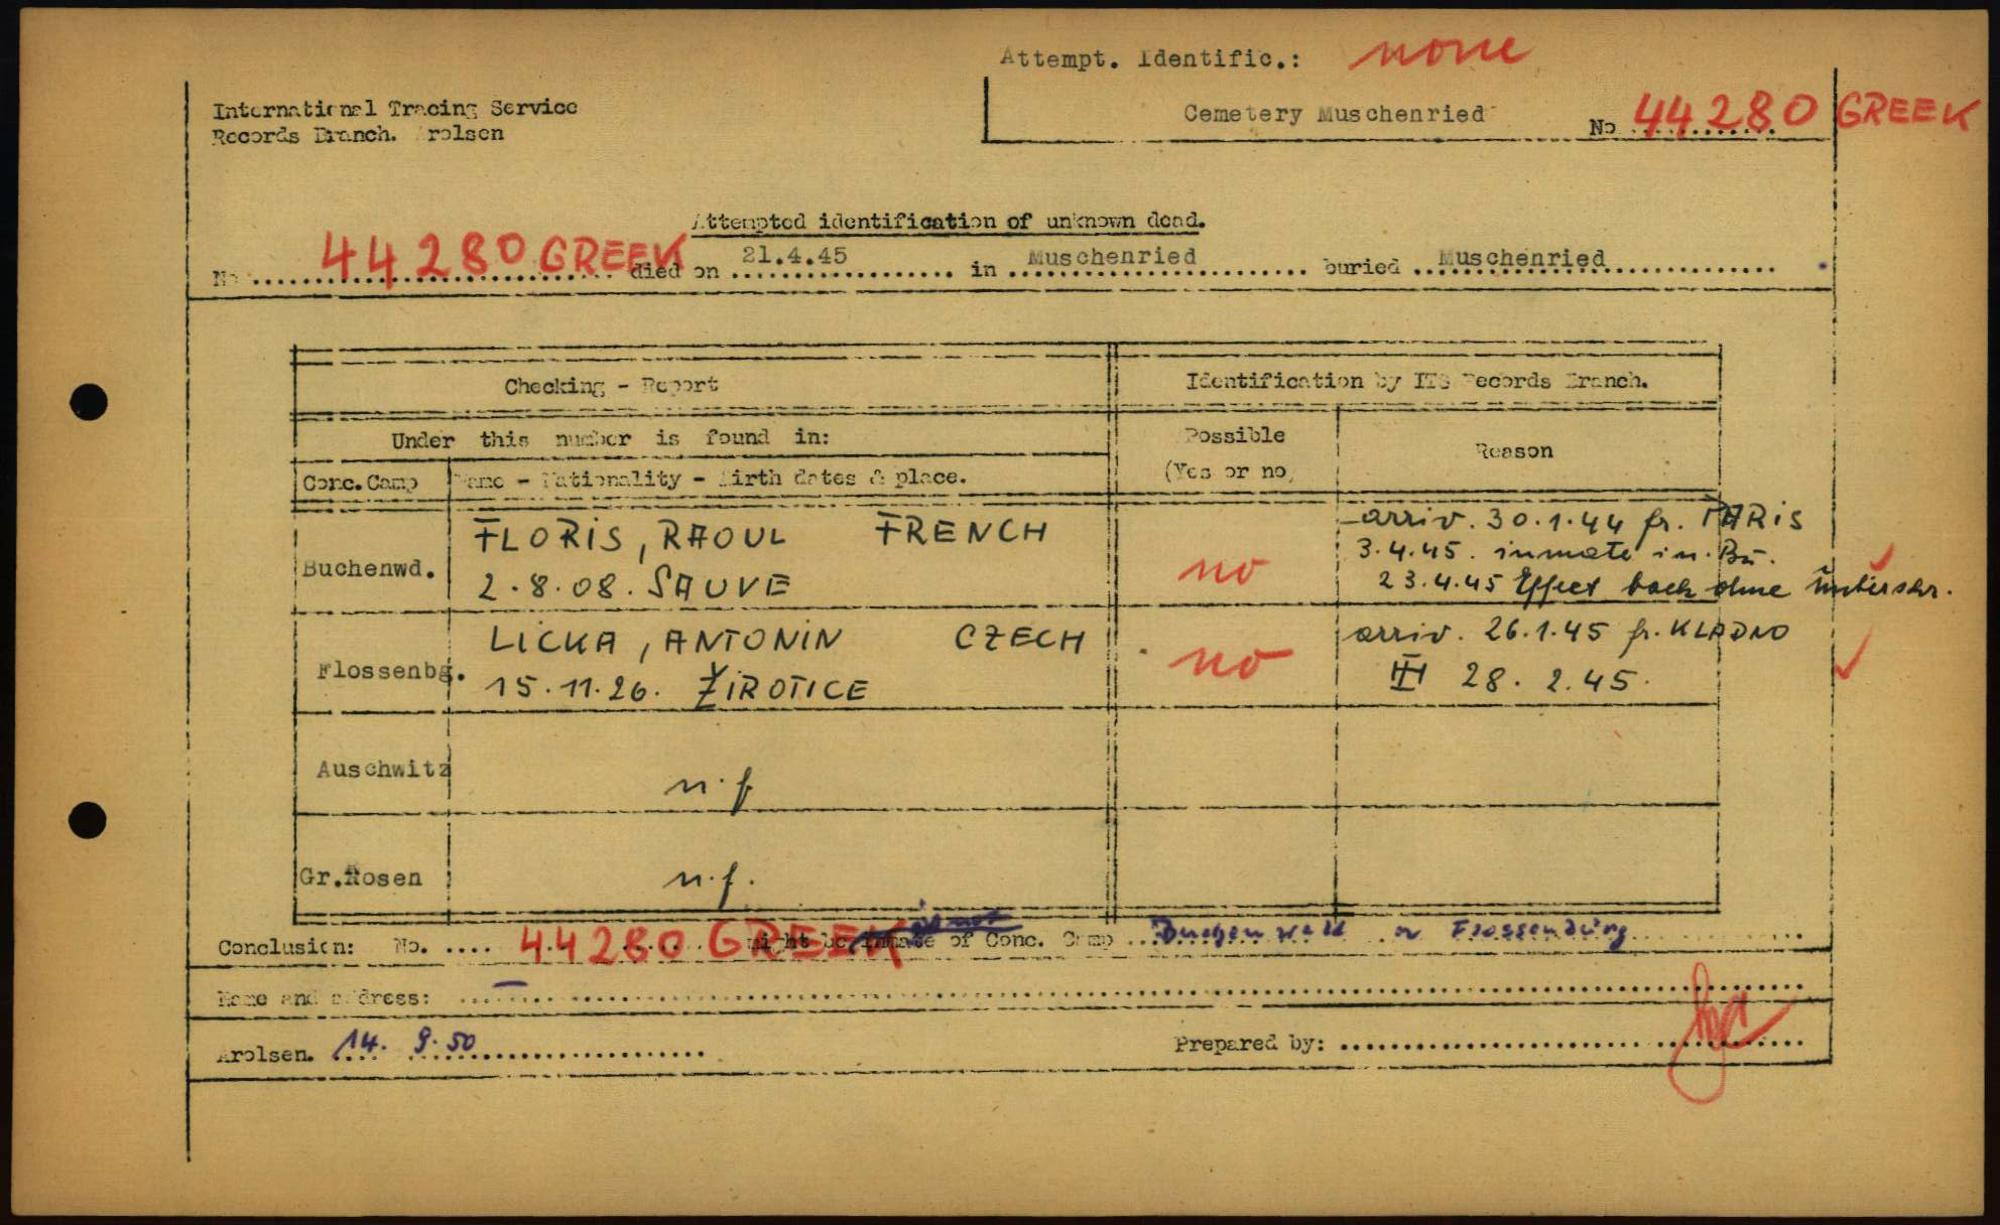 Attempt. Identific.: none
International Tracing Service
Records Branch. Arolsen
Cemetery Muschenried No 44280 GREEK
Attempted identification of unknown dead.
No 44280 GREEK died on 21.4.45 in Muschenried buried Muschenried
Checking - Report
Identification by ITS Records Branch.
Under this number is found in:
Possible
(Yes or no)
Reason
Conc. Camp Name - Nationality - Birth dates & place.
Buchenwd.
FLORIS, RAOUL FRENCH
2.8.08. SAUVE
no
arriv. 30.1.44 fr. PARIS
3.4.45. inmate in. Bu.
23.4.45 Effect back ohne Unterschr.
Flossenbg.
LICKA, ANTONIN CZECH
15.11.26. ŽIROTICE
no
arriv. 26.1.45 fr. KLADNO
28. 2.45.
Auschwitz n.f
Gr.Rosen n.f.
is not
Conclusion: No. 44280 GREEK might be inmate of Conc. Camp Buchenwald or Flossenbürg
Name and address: —
Arolsen. 14. 9. 50 Prepared by: